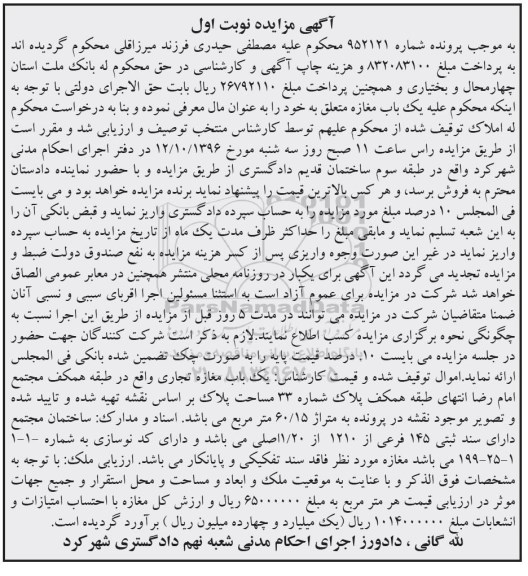 آگهی مزایده نوبت اول
به موجب پرونده شماره ۹۵۲۱۲۱ محکوم علیه مصطفی حیدری فرزند میرزاقلی محکوم گردیده اند
به پرداخت مبلغ ۸۳۲۰۸۳۱۰۰ و هزینه چاپ آگهی و کارشناسی در حق محکوم له بانک ملت استان
چهارمحال و بختیاری و همچنین پرداخت مبلغ ۲۶۷۹۲۱۱۰ ریال بابت حق الاجرای دولتی با توجه به
اینکه محکوم علیه یک باب مغازه متعلق به خود را به عنوان مال معرفی نموده و بنا به درخواست محکوم
له املاک توقیف شده از محکوم علیهم توسط کارشناس منتخب توصیف و ارزیابی شد و مقرر است
از طریق مزایده راس ساعت ۱۱ صبح روز سه شنبه مورخ ۱۲/۱۰/۱۳۹۶ در دفتر اجرای احکام مدنی
شهرکرد واقع در طبقه سوم ساختمان قدیم دادگستری از طریق مزایده و با حضور نماینده دادستان
محترم به فروش برسد، و هر کس بالاترین قیمت را پیشنهاد نماید برنده مزایده خواهد بود و می بایست
فی المجلس ۱۰ درصد مبلغ مورد مزایده را به حساب سپرده دادگستری واریز نماید و قبض بانکی آن را
به این شعبه تسلیم نماید و مابقی مبلغ را حداکثر ظرف مدت یک ماه از تاریخ مزایده به حساب سپرده
واریز نماید در غیر این صورت وجوه واریزی پس از کسر هزینه مزایده به نفع صندوق دولت ضبط و
مزایده تجدید می گردد این آگهی برای یکبار در روزنامه محلی منتشر همچنین در معابر عمومی الصاق
خواهد شد شرکت در مزایده برای عموم آزاد است به استثنا مسئولین اجرا اقربای سببی و نسبی آنان
ضمنا متقاضیان شرکت در مزایده می توانند در مدت ۵ روز قبل از مزایده از طریق این اجرا نسبت به
چگونگی نحوه برگزاری مزایده کسب اطلاع نمایند.لازم به ذکر است شرکت کنندگان جهت حضور
در جلسه مزایده می بایست ۱۰ درصد قیمت پایه را به صورت چک تضمین شده بانکی فی المجلس
ارائه نماید.اموال توقیف شده و قیمت کارشناس: یک باب مغازه تجاری واقع در طبقه همکف مجتمع
امام رضا انتهای طبقه همکف پلاک شماره ۳۳ مساحت پلاک بر اساس نقشه تهیه شده و تایید شده
و تصویر موجود نقشه در پرونده به متراژ ۶۰/۱۵ متر مربع می باشد. اسناد و مدارک: ساختمان مجتمع
دارای سند ثبتی ۱۴۵ فرعی از ۱۲۱۰ از ۱/۲۰اصلی می باشد و دارای کد نوسازی به شماره ۱-۱-
۱-۲۵-۱۹۹ می باشد مغازه مورد نظر فاقد سند تفکیکی و پایانکار می باشد. ارزیابی ملک: با توجه به
مشخصات فوق الذکر و با عنایت به موقعیت ملک و ابعاد و مساحت و محل استقرار و جمیع جهات
موثر در ارزیابی قیمت هر متر مربع به مبلغ ۶۵۰۰۰۰۰۰ ریال و ارزش کل مغازه با احتساب امتیازات و
انشعابات مبلغ ۱۰۱۴۰۰۰۰۰۰ ریال (یک میلیارد و چهارده میلیون ریال ) برآورد گردیده است.
لله گانی ، دادورز اجرای احکام مدنی شعبه نهم دادگستری شهرکرد
ParsNamadData